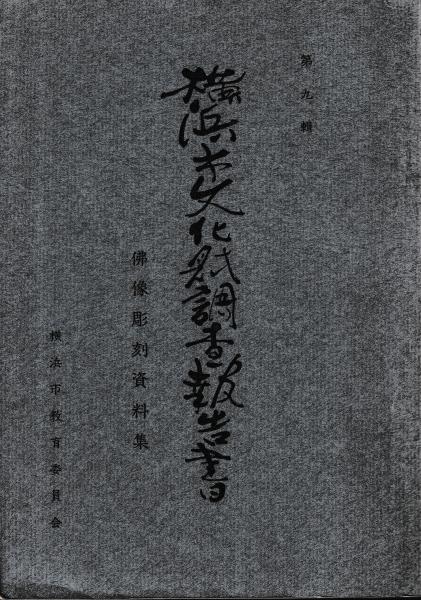 第九輯
横浜市文化財調査報告書
佛像彫刻資料集
横浜市教育委員会